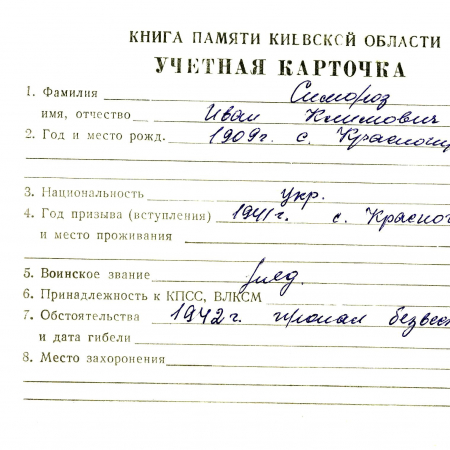 КНИГА ПАМЯТИ КИЕВСКОЙ ОБЛАСТИ
УЧЕТНАЯ КАРТОЧКА
1. Фамилия Симороз
имя, отчество Иван Климович
2. Год и место рожд. 1909г. с.
3. Национальность укр.
4. Год призыва (вступления) 1941г. с.
и место проживания
5. Воинское звание
6. Принадлежность к КПСС, ВЛКСМ
7. Обстоятельства 1942г. пропал
и дата гибели
8. Место захоронения